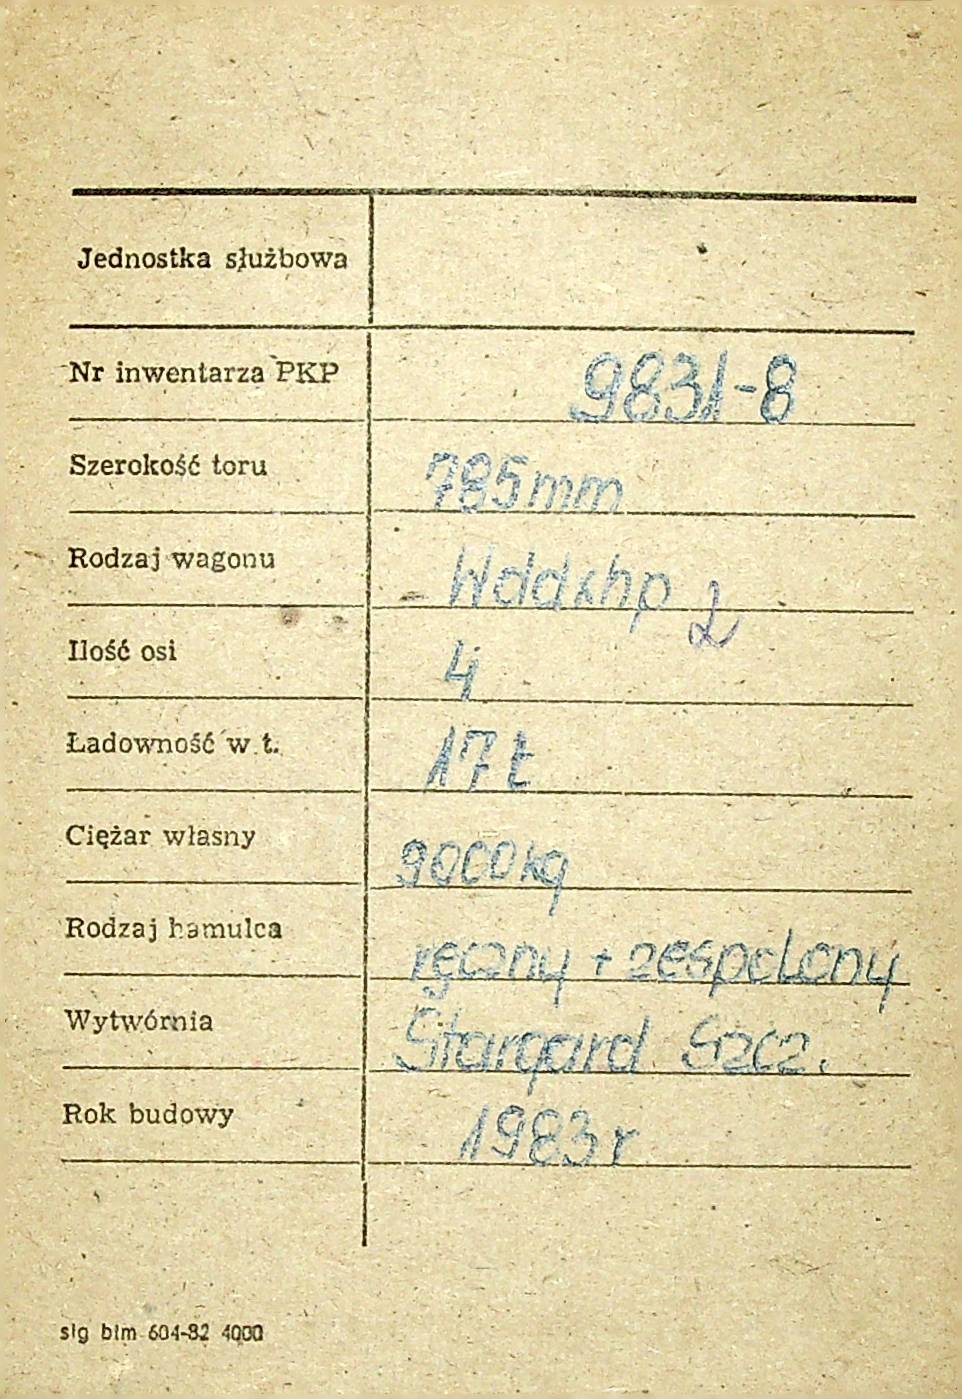 Jednostka służbowa
Nr inwentarza PKP 9831-8
Szerokość toru 785mm
Rodzaj wagonu Wddxhp 2
Ilość osi 4
Ładowność w t. 17t
Ciężar własny 9000kg
Rodzaj hamulca ręczny + zespolony
Wytwórnia Stargard Szcz.
Rok budowy 1983r
slg blm 604-82 4000